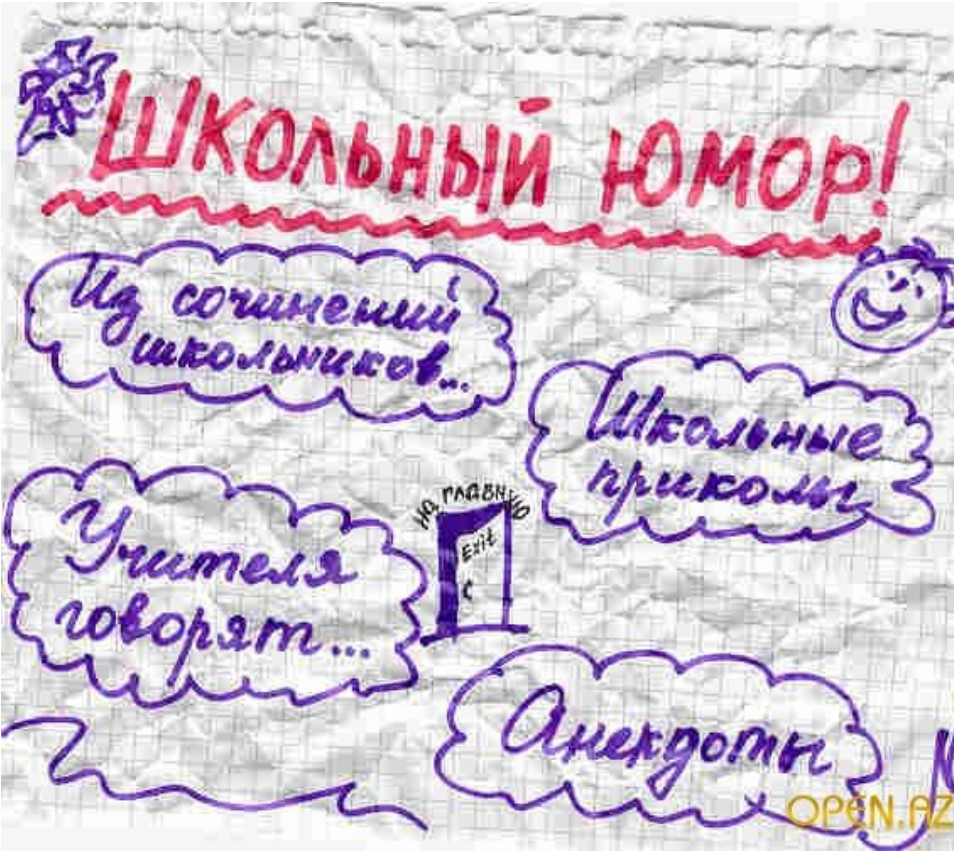 Школьный юмор!
Из сочинений
школьников...
Школьные
приколы
На главную
Exit
Учителя
говорят...
Анекдоты
OPEN.AZ